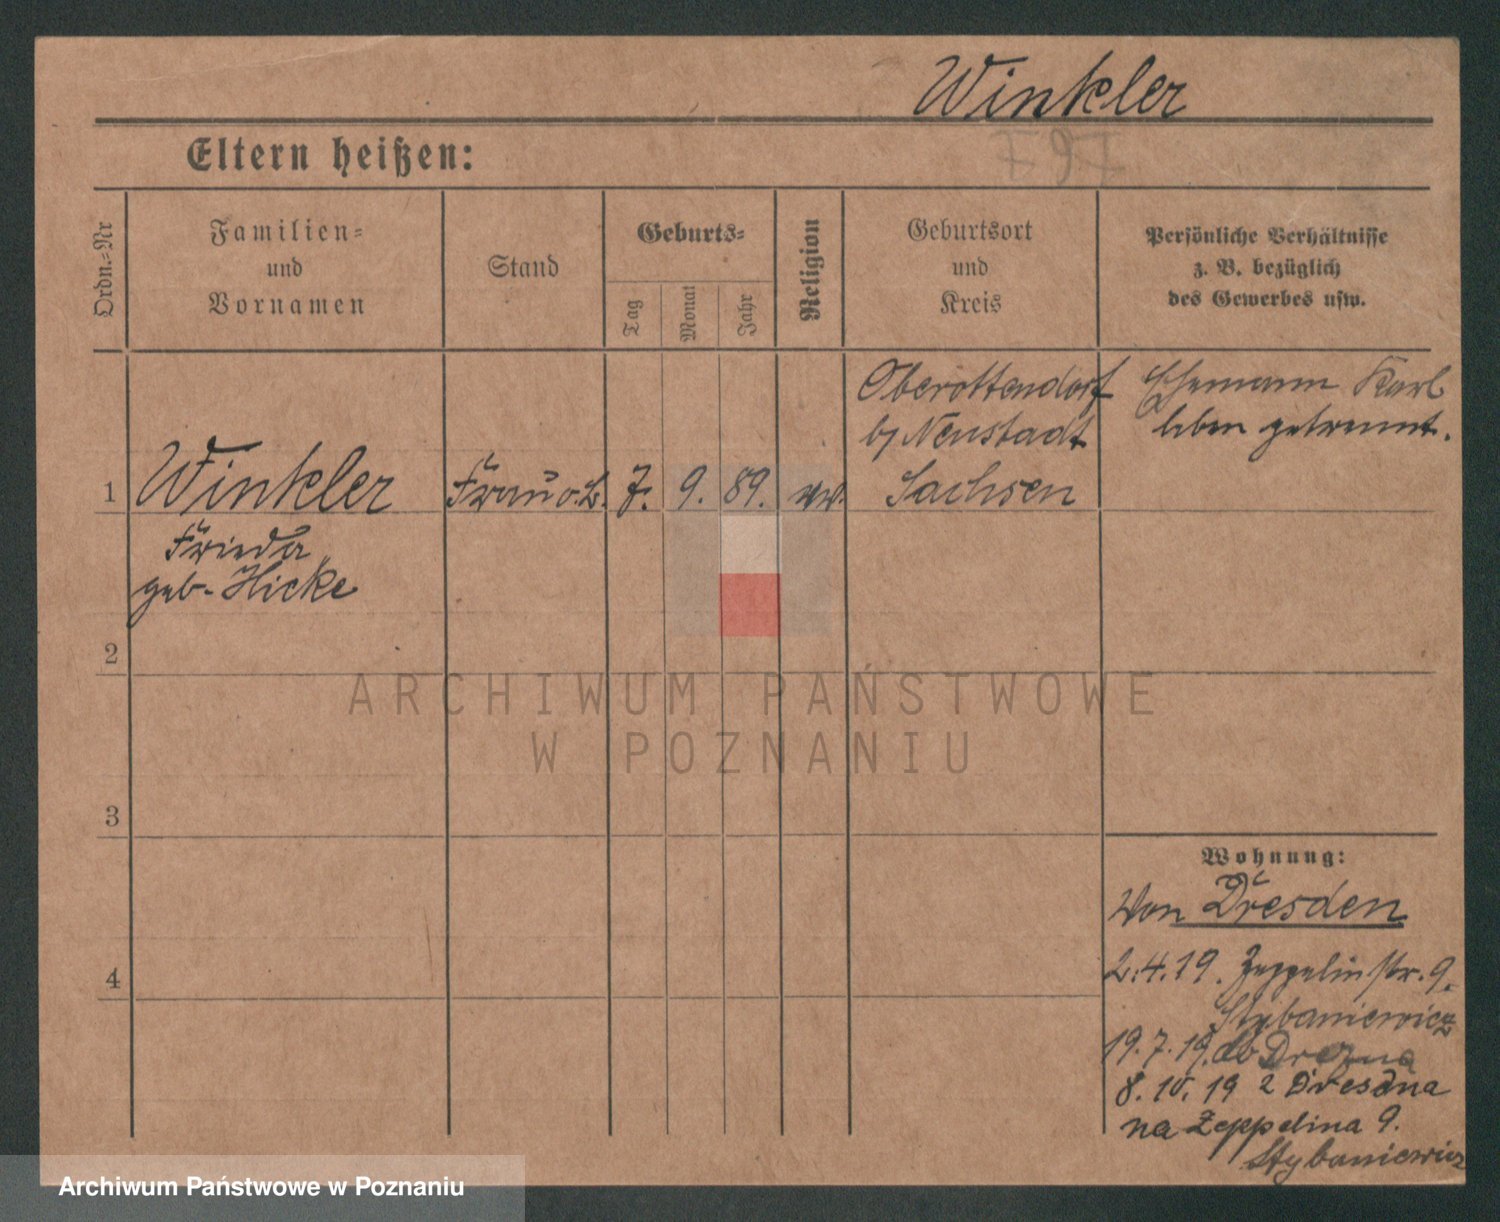 Winkler
Eltern heißen:
Ordn.-Nr
Familien-
und
Vornamen
Stand
Geburts-
Tag
Monat
Jahr
Religion
Geburtsort
und
Kreis
Persönliche Verhältnisse
z. B. bezüglich
des Gewerbes usw.
1
Winkler
Frieda
geb. Hicke
Frau o. B.
7.
9.
89.
Oberottendorf
b/ Neustadt
Sachsen
Ehemann Karl
leben getrennt.
2
3
4
Wohnung:
Von Dresden
2.4.19. Zeppelinstr. 9.
Stybaniewicz
19.7.19. do Drezna
8.10.19 z Dresdna
na Zeppelina 9.
Stybaniewicz
ARCHIWUM PAŃSTWOWE
W POZNANIU
Archiwum Państwowe w Poznaniu